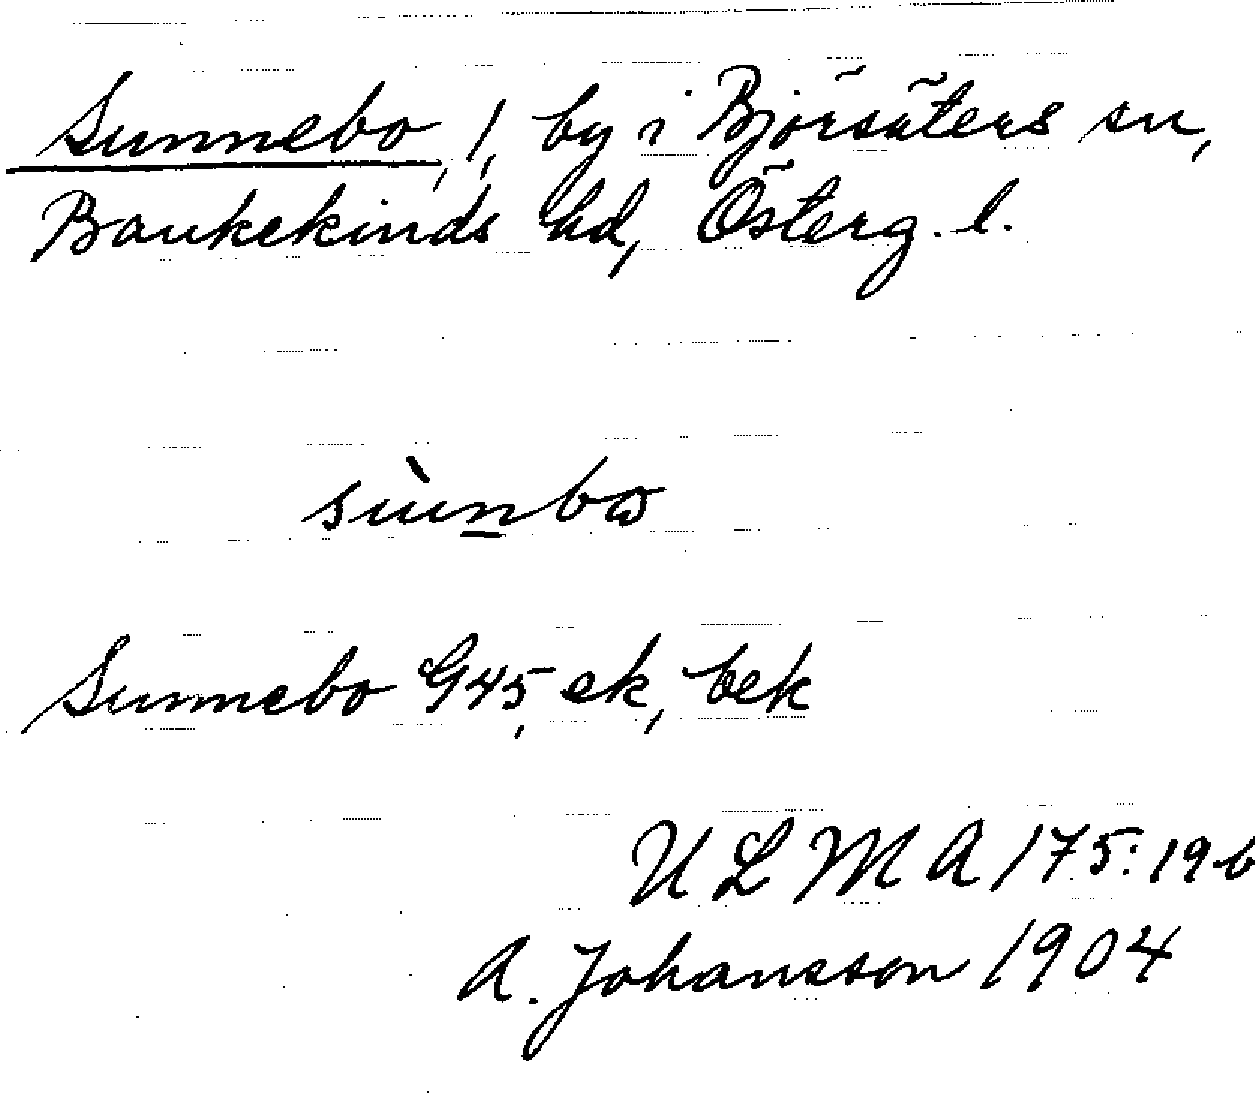 Sunnebo, 1, by i Björsäters sn,
Bankekinds hd, Österg. l.
sùnbω
Sunnebo G45, ek, bek
ULMA 175:19b
A. Johansson 1904